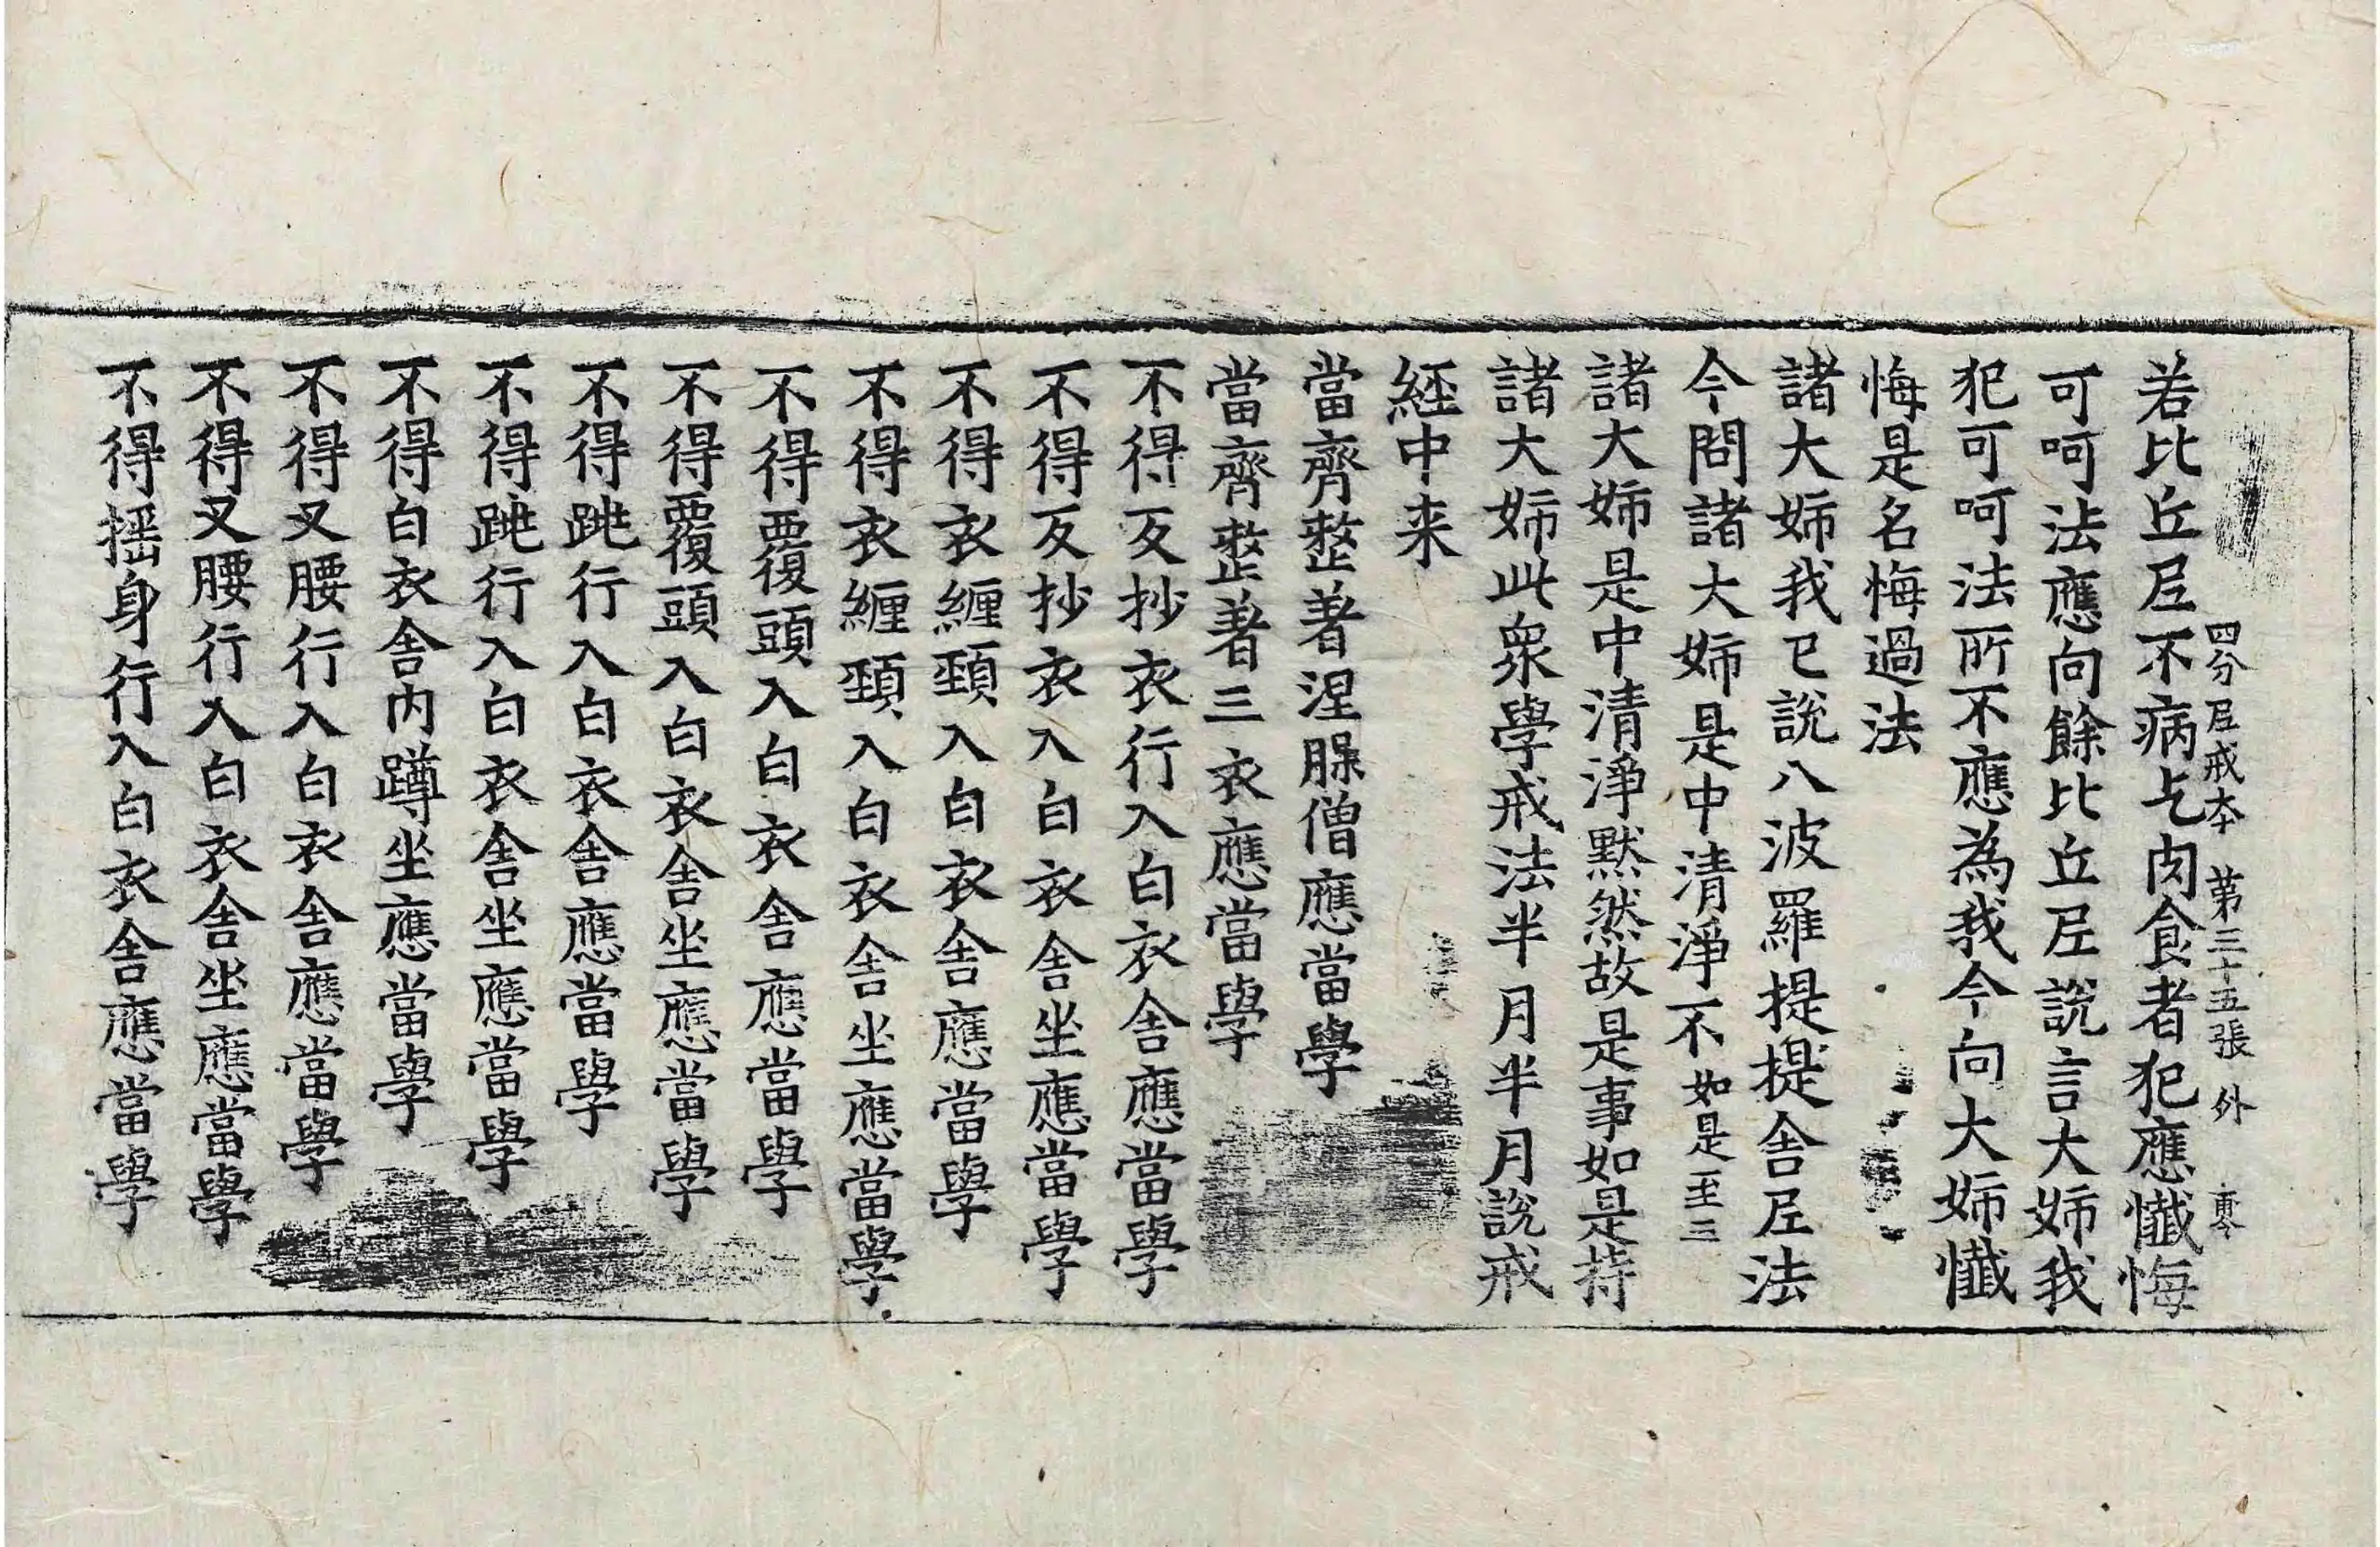 四分尼戒本 第三十五張 外
若比丘尼不病乞肉食者犯應懺悔
可呵法應向餘比丘尼說言大姉我
犯可呵法所不應為我今向大姉懺
悔是名悔過法
諸大姉我已說八波羅提提舍尼法
今問諸大姉是中清淨不如是至三
諸大姉是中清淨默然故是事如是持
諸大姉此衆學戒法半月半月說戒
經中来
當齊整著涅腂僧應當學
當齊整著三衣應當學
不得反抄衣行入白衣舍應當學
不得反抄衣入白衣舍坐應當學
不得衣纏頸入白衣舍應當學
不得衣纏頸入白衣舍坐應當學
不得覆頭入白衣舍應當學
不得覆頭入白衣舍坐應當學
不得跳行入白衣舍應當學
不得跳行入白衣舍坐應當學
不得白衣舍内蹲坐應當學
不得叉腰行入白衣舍應當學
不得叉腰行入白衣舍坐應當學
不得揺身行入白衣舍應當學